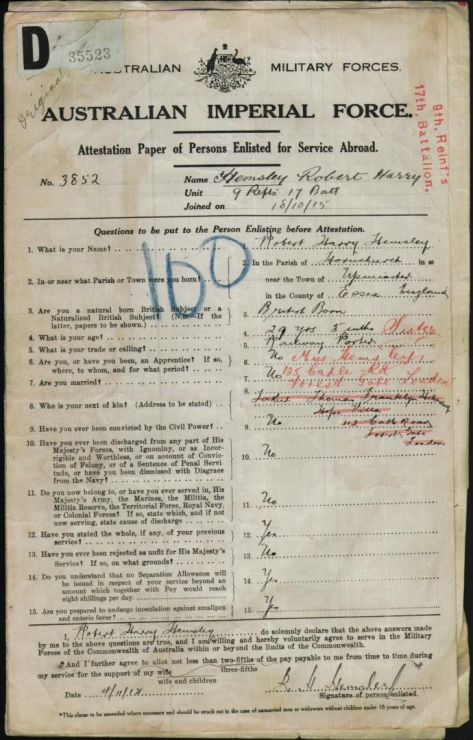 D 35523
Original
AUSTRALIAN MILITARY FORCES.
AUSTRALIAN IMPERIAL FORCE.
9th. Reinf's
17th. Battalion.
Attestation Paper of Persons Enlisted for Service Abroad.
No. 3852 Name Hemsley Robert Harry
Unit 9 Refts 17 Batt
Joined on 18/10/15
Questions to be put to the Person Enlisting before Attestation.
160
1. What is your Name? 1. Robert Harry Hemsley
2. In or near what Parish or Town were you born? 2. In the Parish of Hornchurch in or
near the Town of Upminster
in the County of Essex England
3. Are you a natural born British Subject or a
Naturalized British Subject? (N.B. If the
latter, papers to be shown.) 3. British Born
4. What is your age? 4. 29 yrs 5 mths
5. What is your trade or calling? 5. Railway Porter
6. Are you, or have you been, an Apprentice? If so,
where, to whom, and for what period? 6. No
7. Are you married? 7. No
Mrs. Hemsley
Forest Gate London
8. Who is your next of kin? (Address to be stated) 8. Thomas Franklyn Hemsley
Forest Gate
London
9. Have you ever been convicted by the Civil Power? 9. No
10. Have you ever been discharged from any part of His
Majesty's Forces, with Ignominy, or as Incor-
rigible and Worthless, or on account of Conviction
of Felony, or of a Sentence of Penal Servi-
tude, or have you been dismissed with Disgrace
from the Navy? 10. No
11. Do you now belong to, or have you ever served in, His
Majesty's Army, the Marines, the Militia, the
Militia Reserve, the Territorial Force, Royal Navy,
or Colonial Forces? If so, state which, and if not
now serving, state cause of discharge 11. No
12. Have you stated the whole, if any, of your previous
service? 12. Yes
13. Have you ever been rejected as unfit for His Majesty's
Service? If so, on what grounds? 13. No
14. Do you understand that no Separation Allowance will
be issued in respect of your service beyond an
amount which together with Pay would reach
eight shillings per day. 14. Yes
15. Are you prepared to undergo inoculation against smallpox
and enteric fever? 15. Yes
I, Robert Harry Hemsley do solemnly declare that the above answers made
by me to the above questions are true, and I am willing and hereby voluntarily agree to serve in the Military
Forces of the Commonwealth of Australia within or beyond the limits of the Commonwealth.
*And I further agree to allot not less than two-fifths of the pay payable to me from time to time during
three-fifths
my service for the support of my wife
wife and children
Date R. H. Hemsley
Signature of person enlisted.
*This clause to be amended where necessary and should be struck out in the case of unmarried men or widowers without children under 18 years of age.